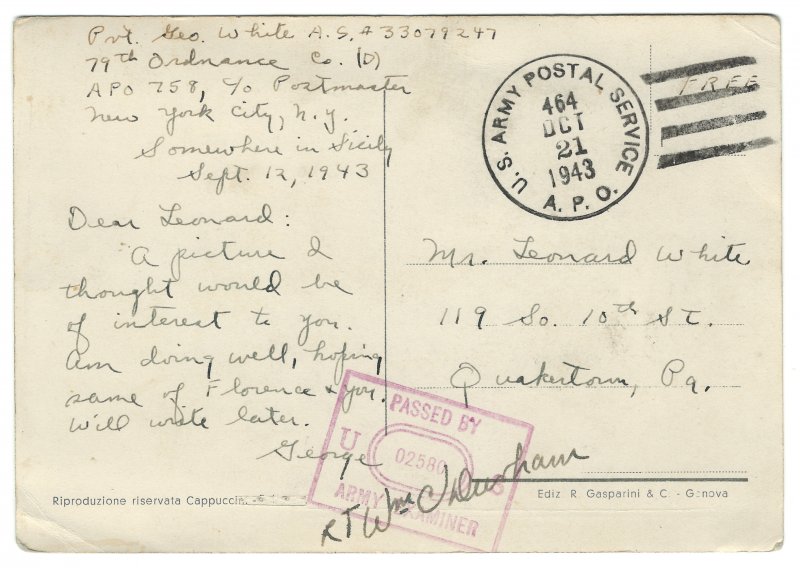 Pvt. Geo. White A.S.# 33079247
79th Ordnance Co. (D)
APO 758, c/o Postmaster
New York City, N.Y.
Somewhere in Sicily
Sept. 12, 1943
Dear Leonard:
A picture I
thought would be
of interest to you.
Am doing well, hoping
same of Florence & you.
Will write later.
George
U.S. ARMY POSTAL SERVICE
464
OCT
21
1943
A. P. O.
FREE
Mr. Leonard White
119 So. 10th St.
Quakertown, Pa.
PASSED BY
U S
02580
ARMY EXAMINER
Riproduzione riservata
Ediz. R. Gasparini & C. - Genova